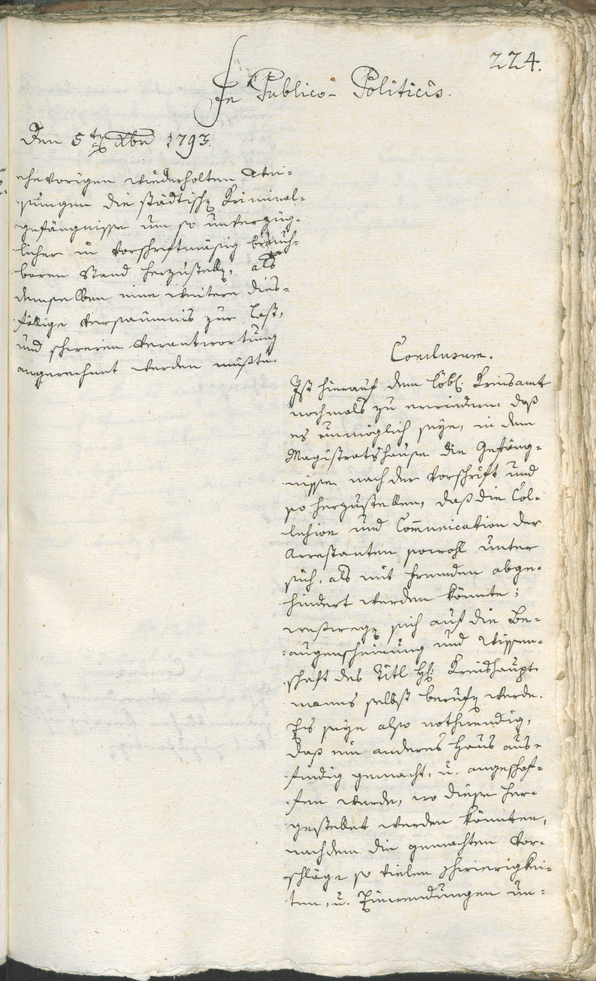 224.
In Publico-Politicis.
Den 5ten Xbr 1793.
ehevorigen wiederholten Wei-
sungen die städtisch. Kriminal-
gefängnisse um so unverzüg-
licher in vorschriftmäsig brauch-
baren Stand herzustell., als
demselben eine weitere dies-
fälige Versaumnis zur Last,
und schweren Verantwortung
angerechnet werden müßte.
Conclusum.
Ist hierauf dem löbl. Kreisamt
nochmals zu erwiedern, daß
es unmöglich seye, in dem
Magistratshause die Gefäng-
nisse nach der Vorschrift und
so herzustellen, daß die Col-
lusion und Communication der
Arrestanten sowohl unter
sich, als mit fremden abge-
hindert werden könnte;
westwegen sich auf die Be-
augenscheinung und Wissen-
schaft des Titl. H. Kreishaupt-
manns selbst beruf. werde.
Es seye also nothwendig,
daß ein anderes Haus aus-
findig gemacht, u. angeschaf-
fen werde, wo diese her-
gestellet werden könnten,
nachdem die gemachten Vor-
schläge so vielen Schwierigkei-
ten, u. Einwendungen un-